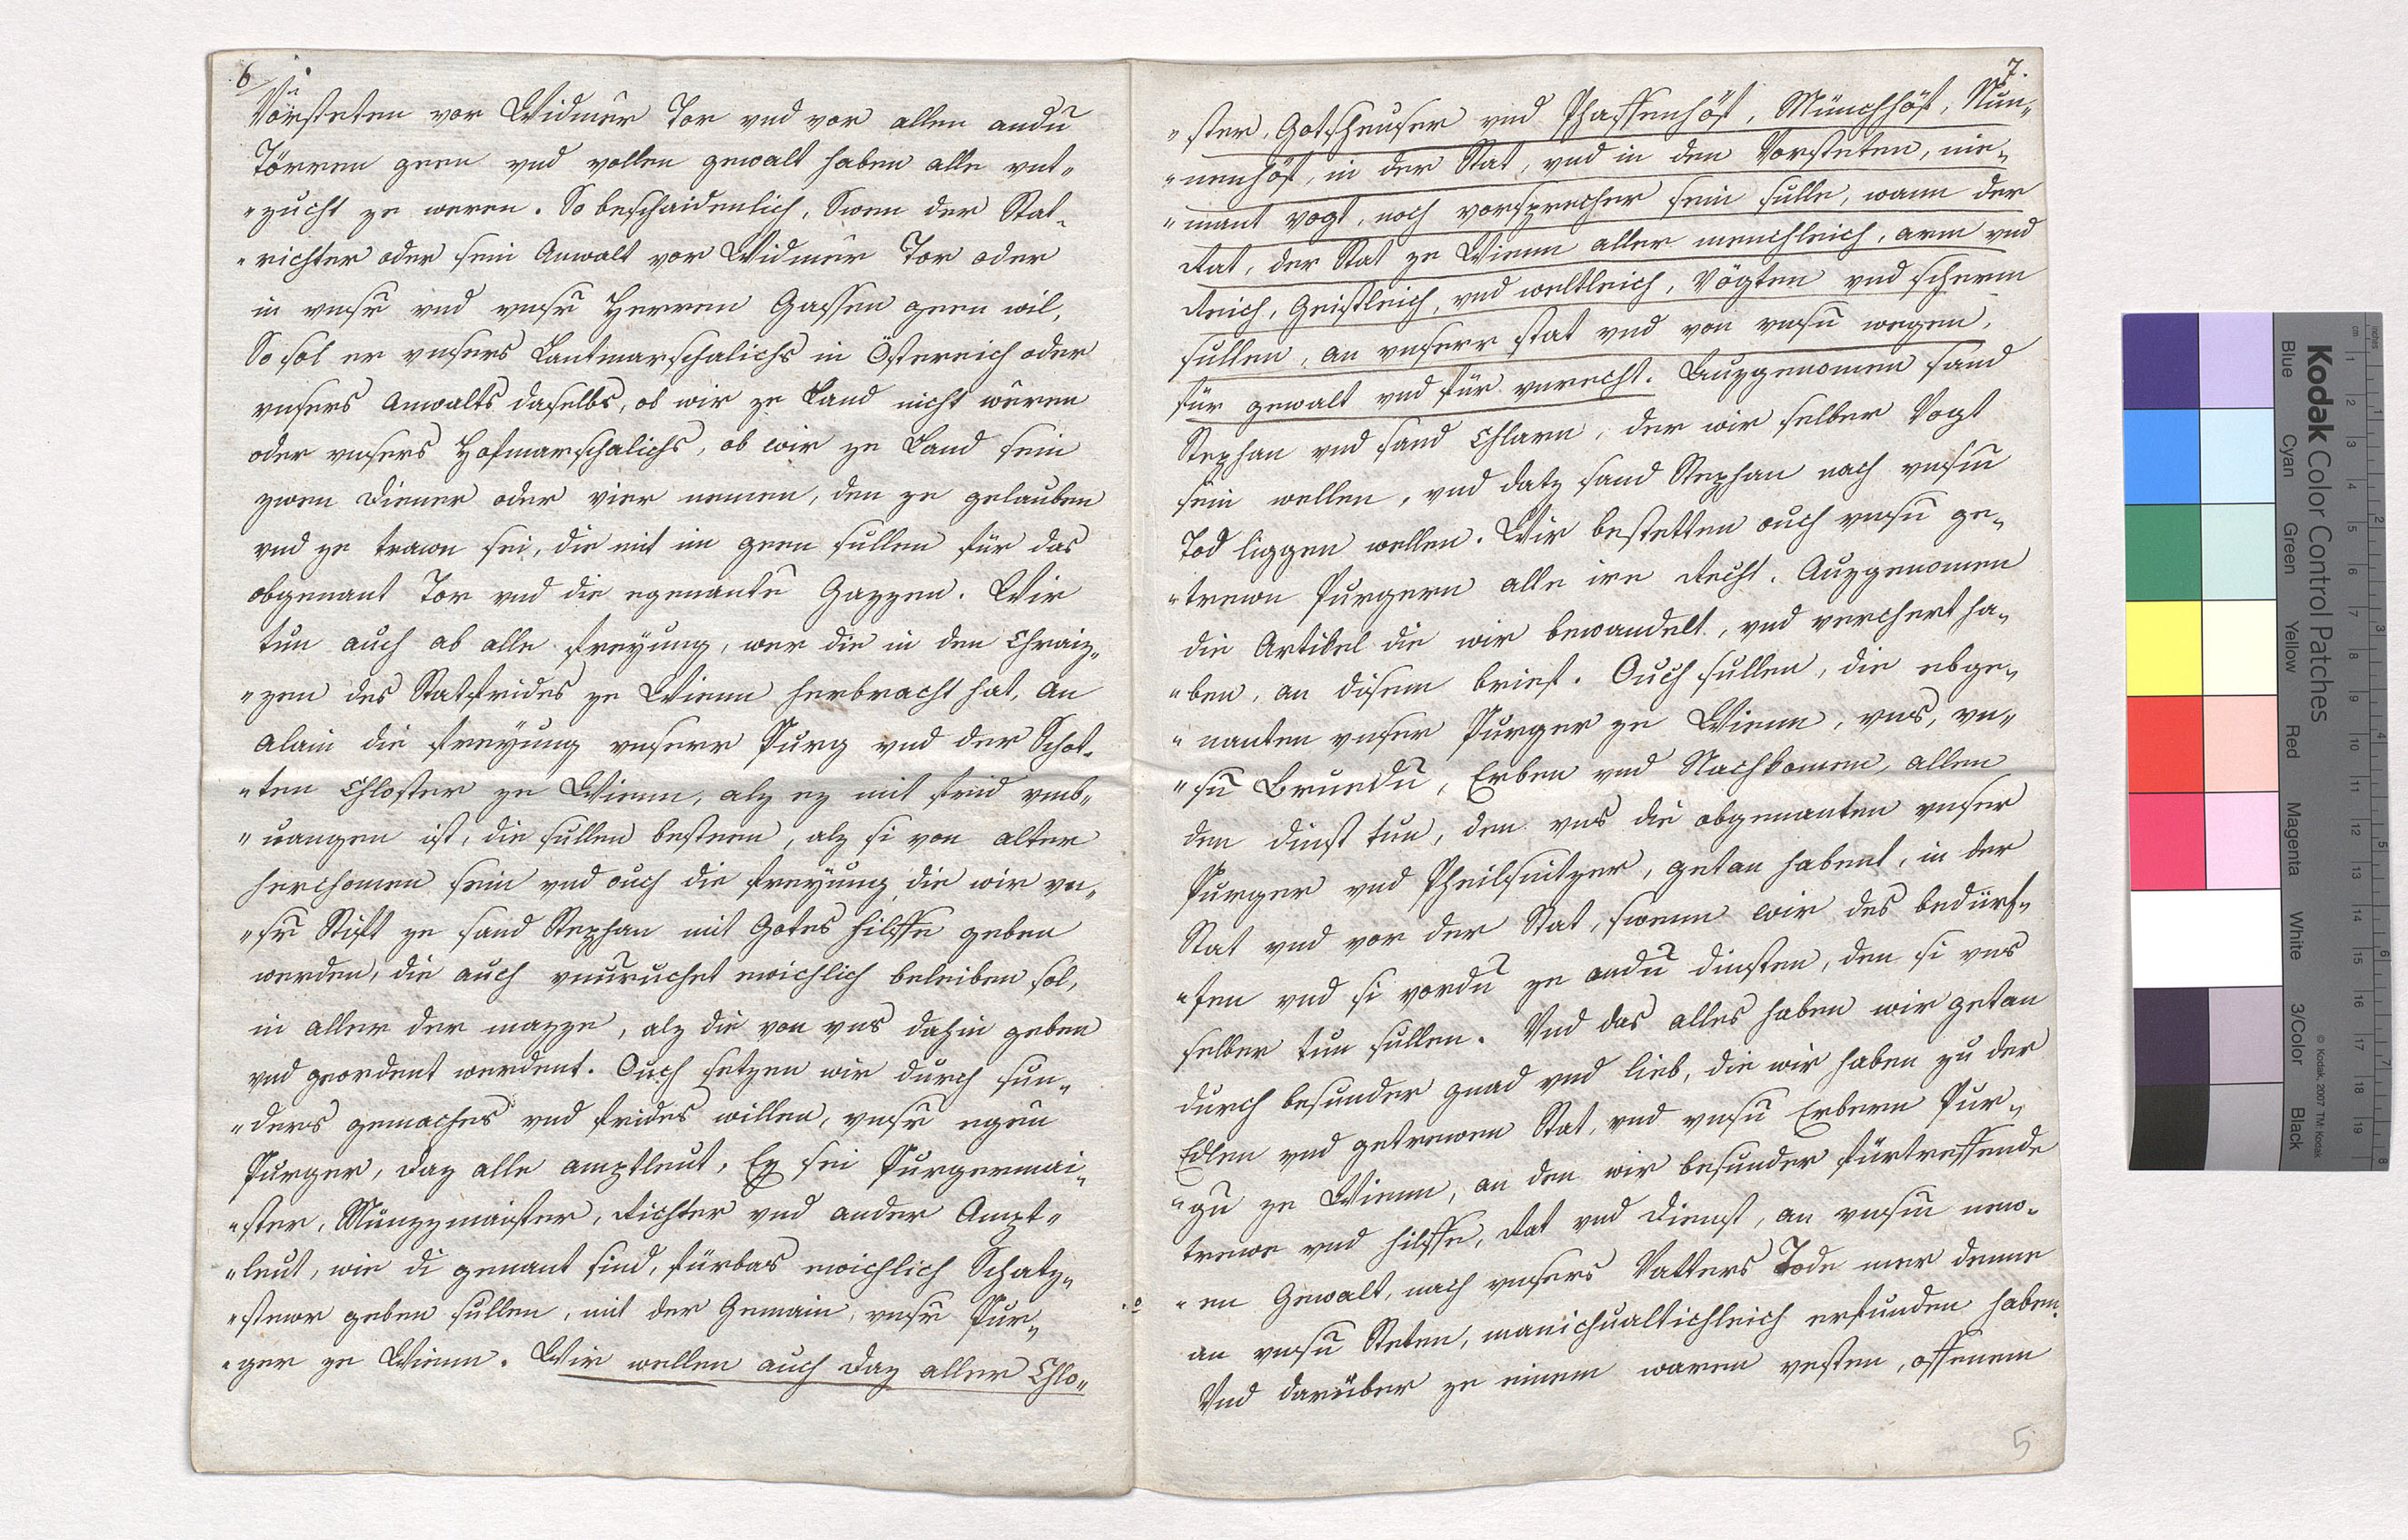 6
Vorsteten vor Widmer Tor vnd vor allen andn̄
Törren geen vnd vollen gewalt haben alle vnt„
„zucht ze weren. So beschaidenlich, Swen der Stat„
„richter oder sein Anwalt vor Widmer Tor oder
in vnsr̄ vnd vnsr̄ Herren Gassen geen wil,
So sol er vnsers Lantmarschalichs in Österreich oder
vnsers Anwalts daselbs, ob wir ze Land nicht weren
oder vnsers Hofmarschalichs, ob wir ze Land sein
zwen Diener oder vier nemen, den ze gelauben
vnd ze trawn sei, die mit im geen sullen für das
obgenant Tor vnd die egenante Gazzen. Wir
tun auch ab alle freyung, wer die in den Chraiz„
„zen des Statfrides ze Wienn herbracht hat, an
alain die freyung vnserr Purg vnd der Schot„
„ten Chloster ze Wienn, alz ez mit frid vmb„
„uangen ist, die sullen besteen, alz si von alter
herchomen sein vnd ouch die freyung die wir vn„
„sr̄ Stift ze sand Stephan mit Gotes hilffe geben
werden, die auch vnuruchet ewichlich beleiben sol,
in aller der mazze, alz die von vns dahin geben
vnd geordent werdent. Ouch setzen wir durch sun„
„ders gemaches vnd frides willen, vnsr̄ egen̄
Purger, daz alle amptleut, Ez sei Purgermai„
„ster, Münzzmaister, Richter vnd ander Ampt„
„leut, wie di genant sind, fürbas ewichlich Schatz„
„stewr geben sullen, mit der Gemain, vnsr̄ Pur„
„ger ze Wienn. Wir wellen auch daz aller Chlo„
7.
„ster, Gotsheuser vnd Phaffenhöf, Münchhöf, Nun„
„nenhöf, in der Stat, vnd in den Vorsteten, nie„
„mant vogt, noch vorsprecher sein sulle, wann der
Rat, der Stat ze Wienn aller menchleich, arm vnd
Reich, Geistleich, vnd weltleich, Vögten vnd scherm
sullen, an vnserr stat vnd von vnsn̄ wegen,
für gewalt vnd für vnrecht. Auzgenomen sand
Stephan vnd sand Chlarn, der wir selber Vogt
sein wellen, vnd datz sand Stephan nach vnsm̄
Tod liggen wellen. Wir bestetten ouch vnsn̄ ge„
„trewn Purgern alle ire Recht. Auzgenomen
die Artikel die wir bewandelt, vnd verchert ha„
„ben, an disem brief. Ouch sullen, die ebge„
„nanten vnser Purger ze Wienn, vns, vn„
„sn̄ Bruedn̄, Erben vnd Nachkomen, allen
den dinst tun, den vns die obgenanten vnser
Purger vnd Pheilsnitzer, getan habent, in der
Stat vnd vor der Stat, swenn wir des bedürf„
„fen vnd si vordn̄ ze andn̄ dinsten, den si vns
selber tun sullen. Vnd das alles haben wir getan
durch besunder gnad vnd lieb, die wir haben zu der
Edlen vnd getrewen Stat, vnd vnsn̄ Erbern Pur„
„gn̄ ze Wienn, an den wir besunder fürtreffende
trewe vnd hilffe, Rat vnd Dienst, an vnsm̄ new„
„en Gewalt, nach vnsers Vatters Tode mer denne
an vnsn̄ Steten, manichualtichleich erfunden haben.
Vnd darüber ze einem waren vesten, offenem
5
Kodak Color Control Patches
Blue Cyan Green Yellow Red Magenta White 3/Color Black
© Kodak, 2007 TM: Kodak
inches 1 2 3 4 5 6 7 8
cm 1 2 3 4 5 6 7 8 9 10 11 12 13 14 15 16 17 18 19